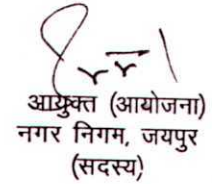 आयुक्त (आयोजना)
नगर निगम, जयपुर
(सदस्य)